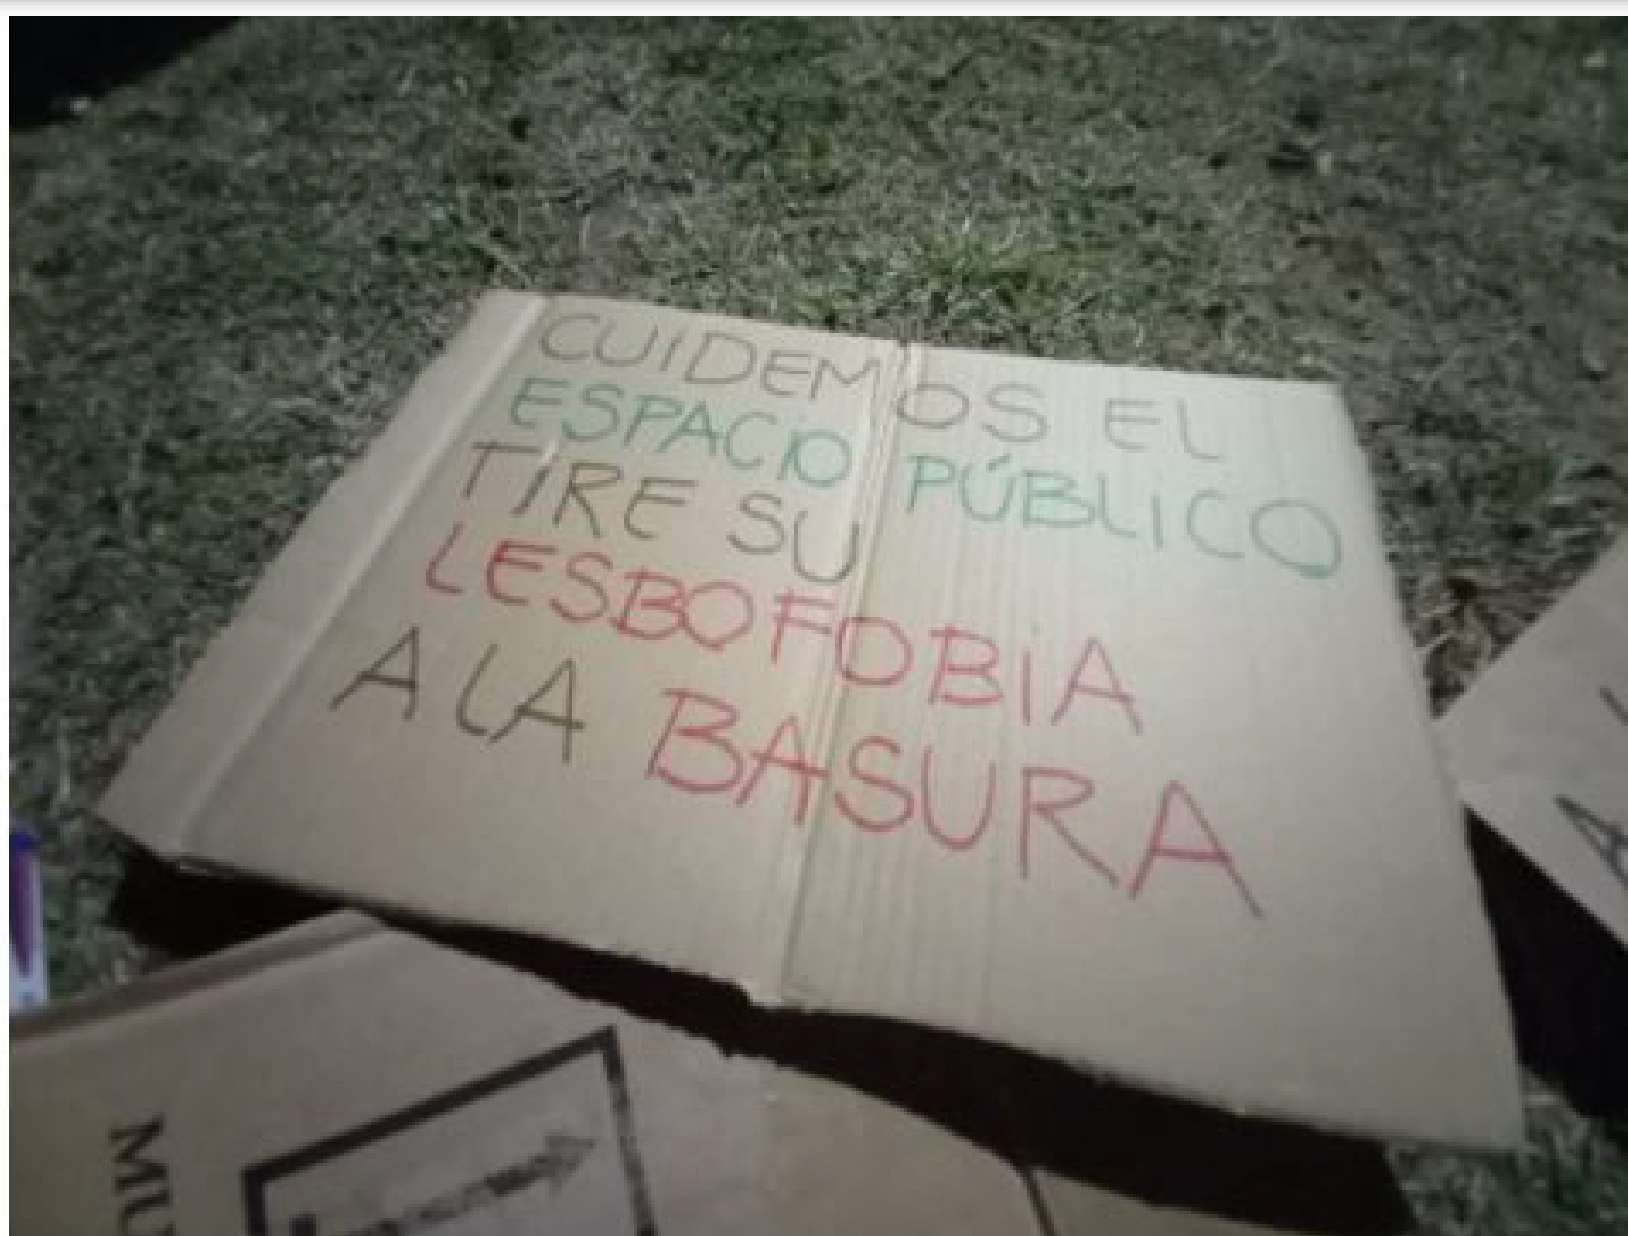 CUIDEMOS EL
ESPACIO PÚBLICO
TIRE SU
LESBOFOBIA
A LA BASURA
MU